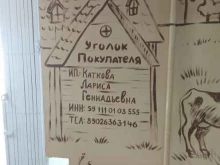 Уголок
Покупателя
ИП: Каткова
Лариса
Геннадьевна
ИНН: 59 111 01 03 555
ТЕЛ: 89026363146